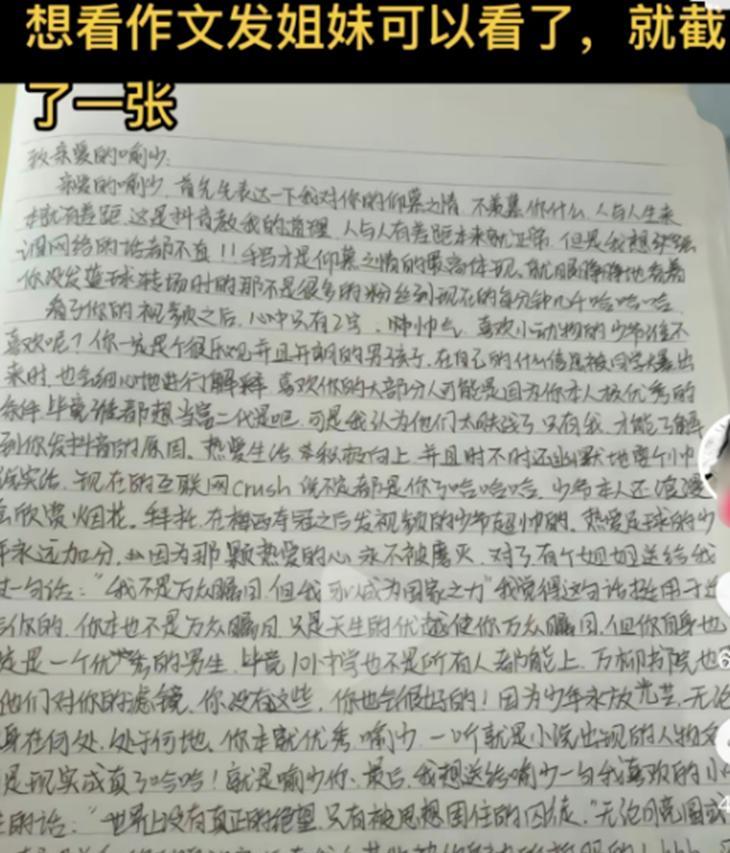 想看作文发姐妹可以看了，就截
了一张
致亲爱的喻少：
亲爱的喻少，首先先表达一下我对你的仰慕之情，不羡慕你什么，人与人生来
本就有差距，这是抖音教我的道理，人与人有差距本来就正常，但是我想
调网络的话都不准！！手写才是仰慕之情的最高体现，就静静地看着
你没发篮球转场时的那不是很多的粉丝到现在的每分钟几千哈哈哈
看了你的视频之后，心中只有2字，帅帅气，喜欢小动物的少爷谁不
喜欢呢？你一定是个很乐观并且开朗的男孩子，在自己的什么信息被同学爆出
来时，也会细心地进行解释，喜欢你的大部分人可能是因为你本人极优秀的
条件，毕竟谁都想当富二代是吧，可是我认为他们太肤浅了，只有我，才能了解
到你发抖音的原因。热爱生活，积极向上，并且时不时还幽默地耍个小帅
诚实话，现在的互联网crush说不定都是你了哈哈哈哈，少爷本人还浪漫
么欣赏烟花。拜托，在梅西夺冠之后发视频的少爷超帅的，热爱足球的少
年永远加分，因为那颗热爱的心永不被磨灭，对了有个姐姐送给我
过一句话："我不是万众瞩目，但我可以成为国家之力"我觉得这句话挺适用于
你的，你本也不是万众瞩目，只是天生的优越使你万众瞩目，但你自身也
定是一个优秀的男生，毕竟101中学也不是所有人都能上，万柳书院也
他们对你的滤镜，你没有这些，你也会很好的！因为少年永放光芒，无论
身在何处，处于何地，你本就优秀，喻少，一听就是小说出现的人物
是现实成真了哈哈！就是喻少你，最后，我想送给喻少一句我喜欢的
的话："世界上没有真正的绝望，只有被思想困住的囚徒，"无论